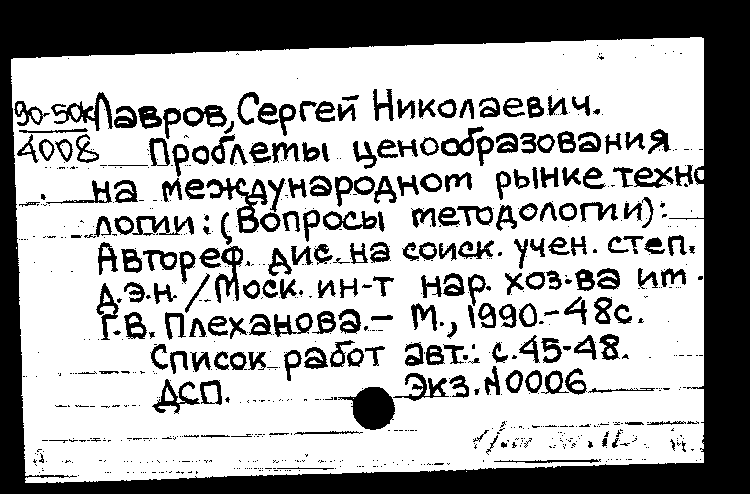 90-50к Лавров, Сергей Николаевич.
4008 Проблемы ценообразования
на международном рынке техно
логии: (Вопросы методологии):
Автореф. дис. на соиск. учен. степ.
д.э.н. / Моск. ин-т нар. хоз-ва им.
Г.В. Плеханова. – М., 1990. – 48с.
Список работ авт.: с.45-48.
ДСП. Экз. N0006.